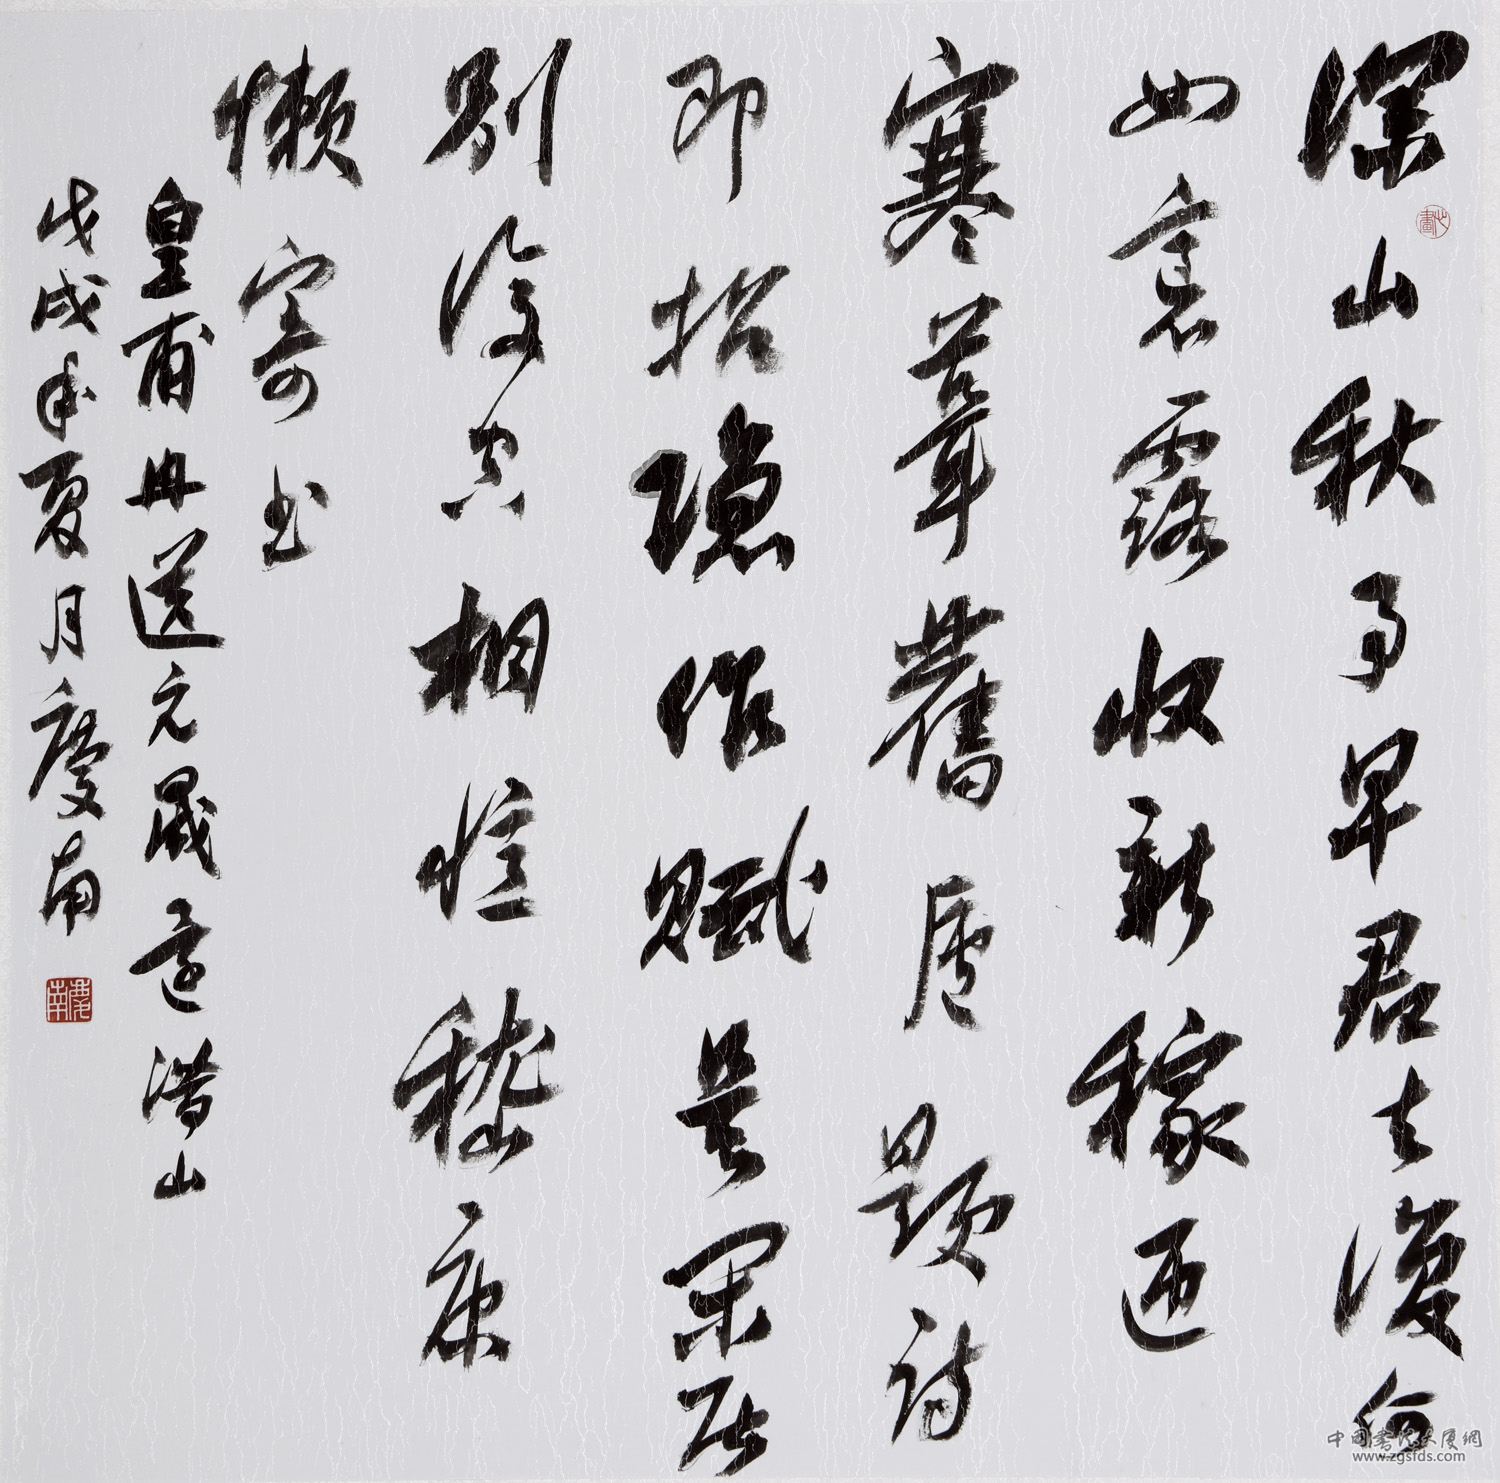 深山秋事早君去復何
如裛露收新稼迎
寒葺舊廬題詩
即招隱作賦是閑居
別後空相憶嵇康
懶寄書
皇甫冉送元晟還潛山
戊戌年夏月慶南
慶南
中国书法大厦网
www.zgsfds.com